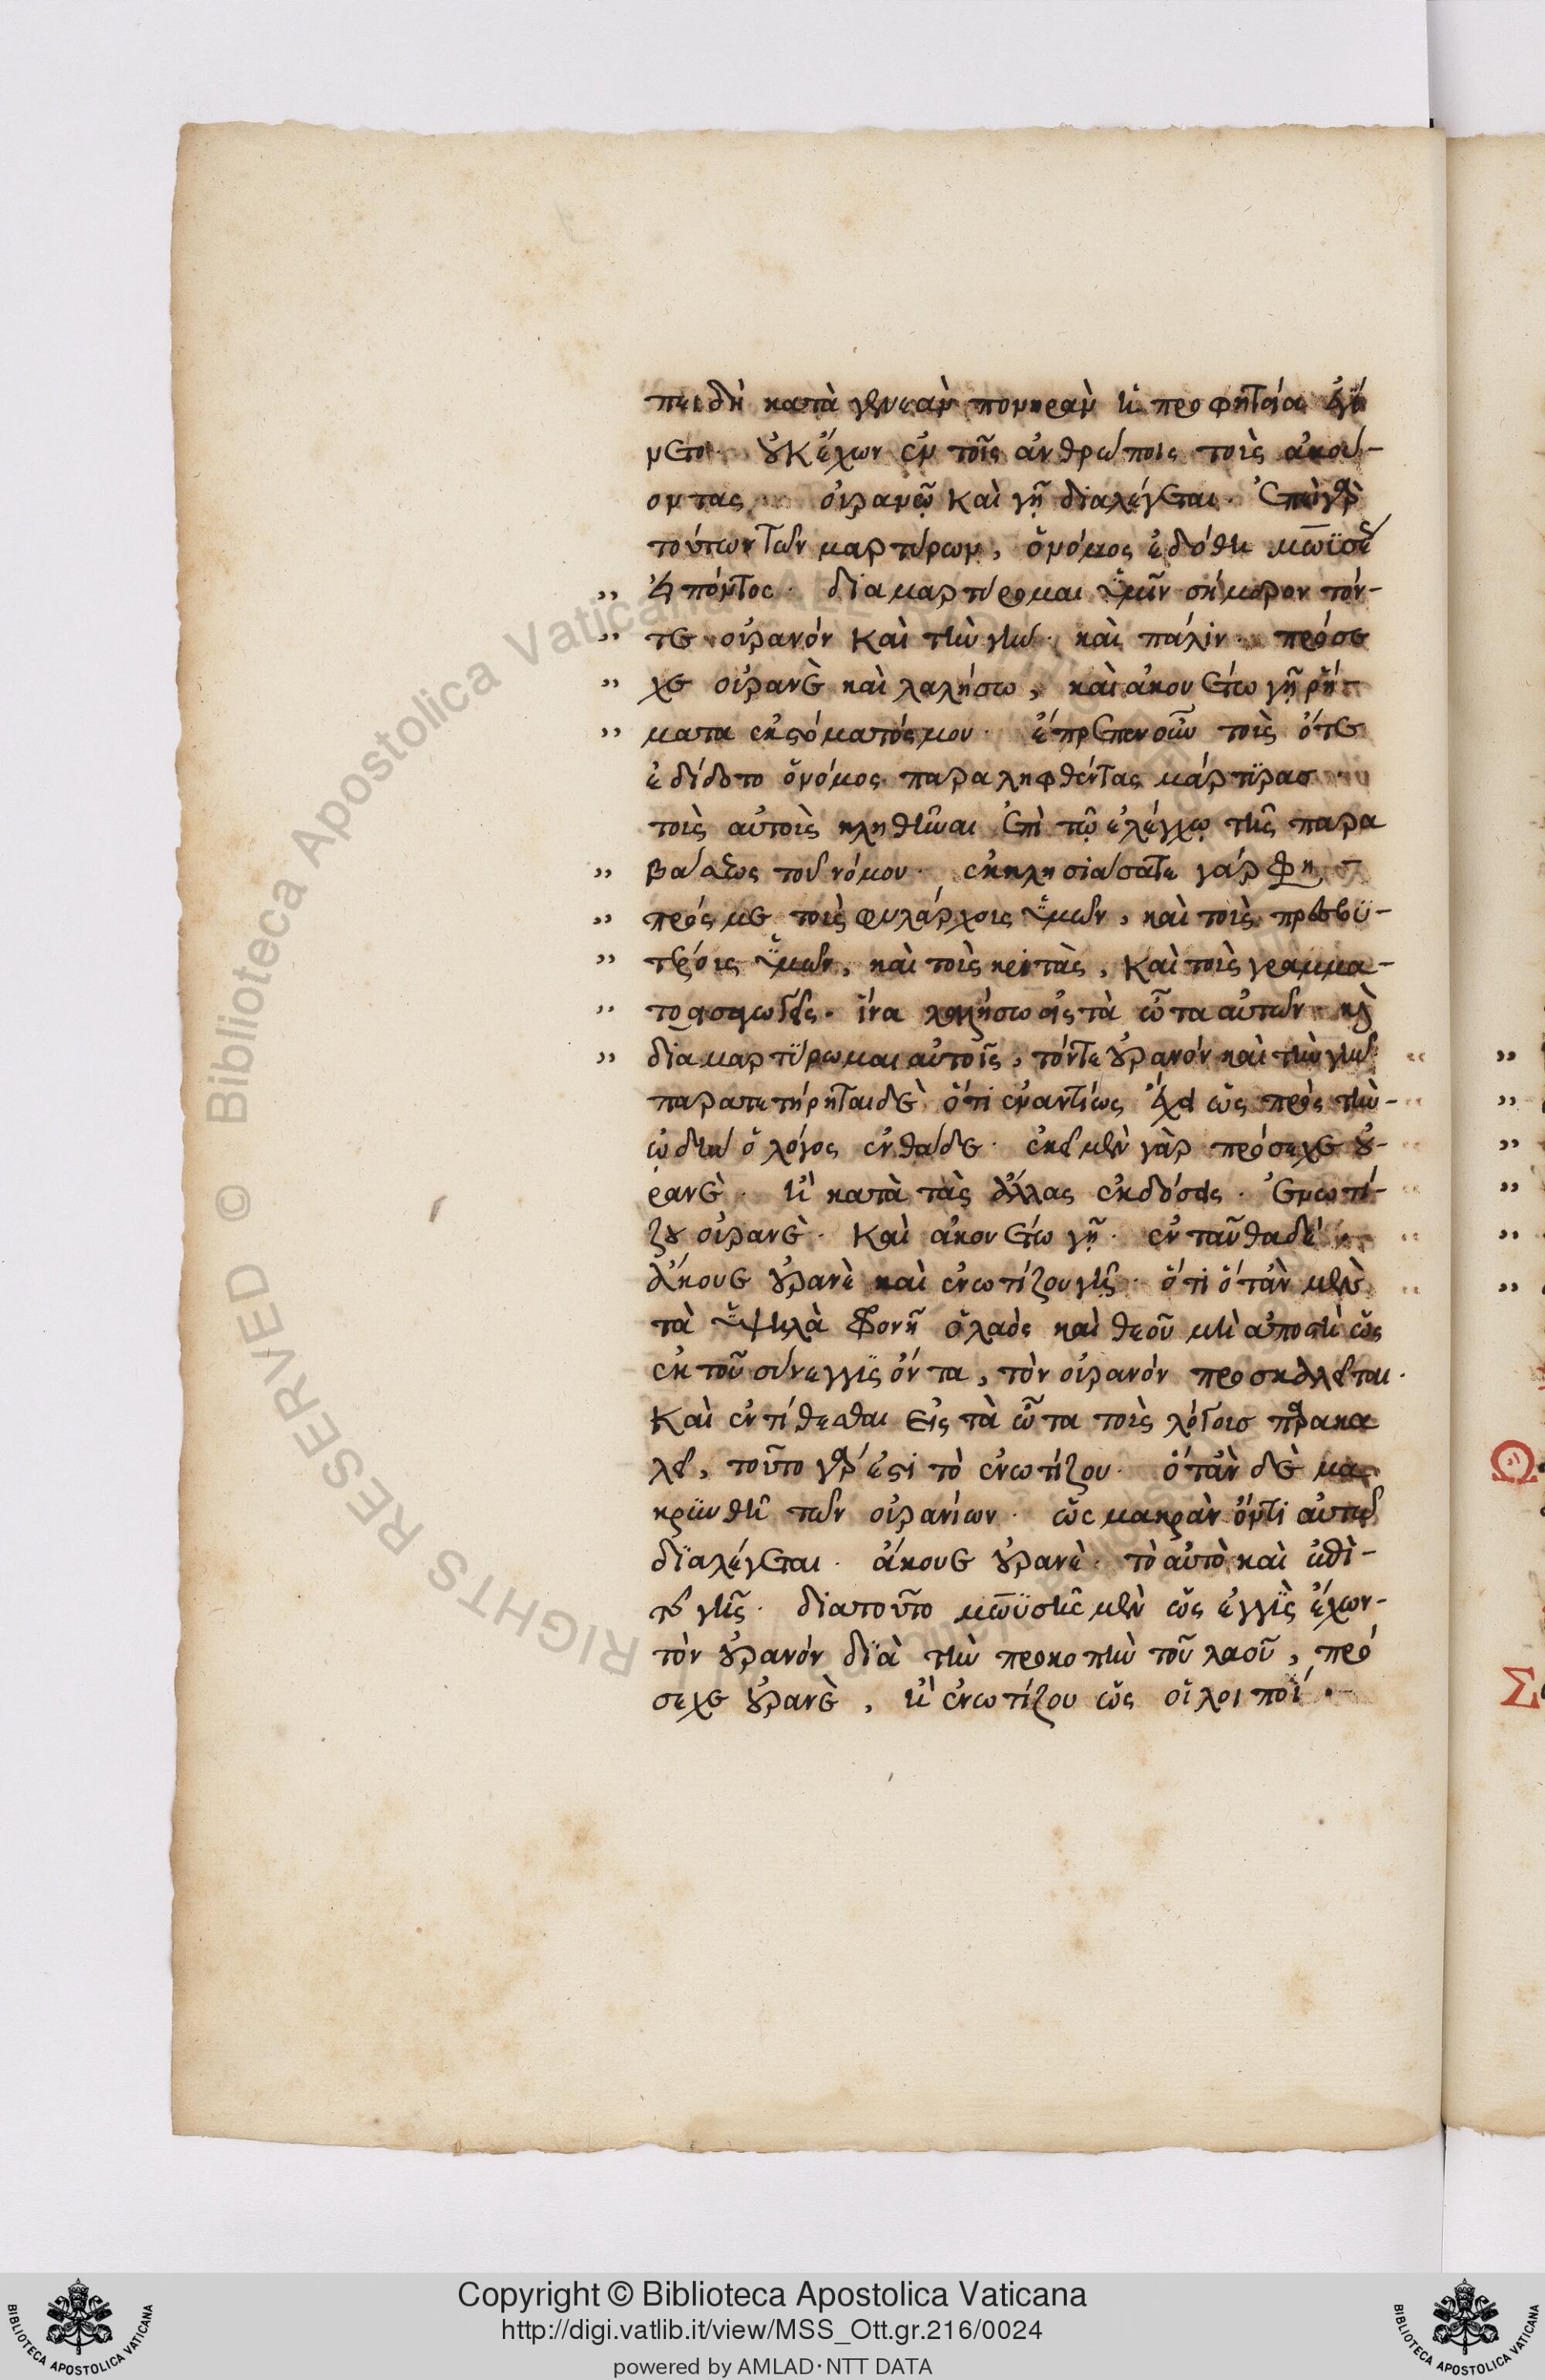 πειδὴ κατὰ γενεὰν πονηρὰν ἡ προφητεία ἐγί
νετο· οὐκ ἔχων ἐν τοῖς ἀνθρώποις τοὺς ἀκού-
οντας οὐρανῷ καὶ γῇ διαλέγεται· Ἐπὶ γὰρ
τούτων τῶν μαρτύρων, ὁ νόμος ἐδόθη μωϋσέ
” εἰπόντος· διαμαρτύρομαι ὑμῖν σήμερον τόν-
” τε οὐρανόν καὶ τὴν γῆν· καὶ πάλιν· πρόσε
” χε οὐρανὲ καὶ λαλήσω, καὶ ἀκουέτω γῆ ῥή-
” ματα ἐκ στόματός μου· ἔπρεπεν οὖν τοὺς ὅτε
ἐδίδοτο ὁ νόμος παραληφθέντας μάρτυρασ
τοὺς αὐτοὺς κληθῆναι ἐπὶ τῷ ἐλέγχῳ τῆς παρα
” βάσεως τοῦ νόμου· ἐκκλησιάσατε γάρ φη
” πρός με τοὺς φυλάρχοις ὑμῶν, καὶ τοὺς πρεσβυ-
” τέροις ὑμῶν, καὶ τοὺς κριτὰς, καὶ τοὺς γραμμα-
” ἵνα λαλήσω εἰς τὰ ὦτα αὐτῶν καὶ
” διαμαρτύρωμαι αὐτοῖς, τόντε οὐρανόν καὶ τὴν γῆν
παρατετήρηται δὲ ὅτι ἐναντίως ἔχει ὡς πρὸς τὴν-
ᾠδὴν ὁ λόγος ἐνθάδε· ἐκεῖ μὲν γὰρ πρόσεχε οὐ-
ρανὲ· ἢ κατὰ τὰς ἄλλας ἐκδόσεις· Ἐνωτί-
ζου οὐρανὲ· Καὶ ἀκουέτω γῆ· ἐνταῦθα δέ
ἄκουε οὐρανὲ καὶ ἐνωτίζου γῆ· ὅτι ὅτὰν μὲν
τὰ ὑψηλὰ φρονῇ ὁ λαὸς καὶ θεοῦ μὴ ἀποστῇ ὡς
ἐκ τοῦ σύνεγγυς ὄντα, τὸν οὐρανόν προσκαλεῖται·
Καὶ ἐντίθεσθαι εἰς τὰ ὦτα τοὺς λόγοισ παρακα
λεῖ, τοῦτο γάρ ἐστι τὸ ἐνωτίζου· ὅτὰν δὲ μα
κρυνθῇ τῶν οὐρανίων· ὡς μακρὰν ὄντι αὐτῶ
διαλέγεται· ἄκουε οὐρανὲ· τὸ αὐτὸ καὶ ἐπὶ-
τῆς γῆς· διατοῦτο μωϋσῆς μὲν ὡς ἐγγὺς ἔχων-
τὸν οὐρανόν διὰ τὴν προκοπὴν τοῦ λαοῦ, πρό
σεχε οὐρανὲ, ἢ ἐνωτίζου ὡς οἱ λοιποί·
Copyright © Biblioteca Apostolica Vaticana
http://digi.vatlib.it/view/MSS_Ott.gr.216/0024
powered by AMLAD·NTT DATA